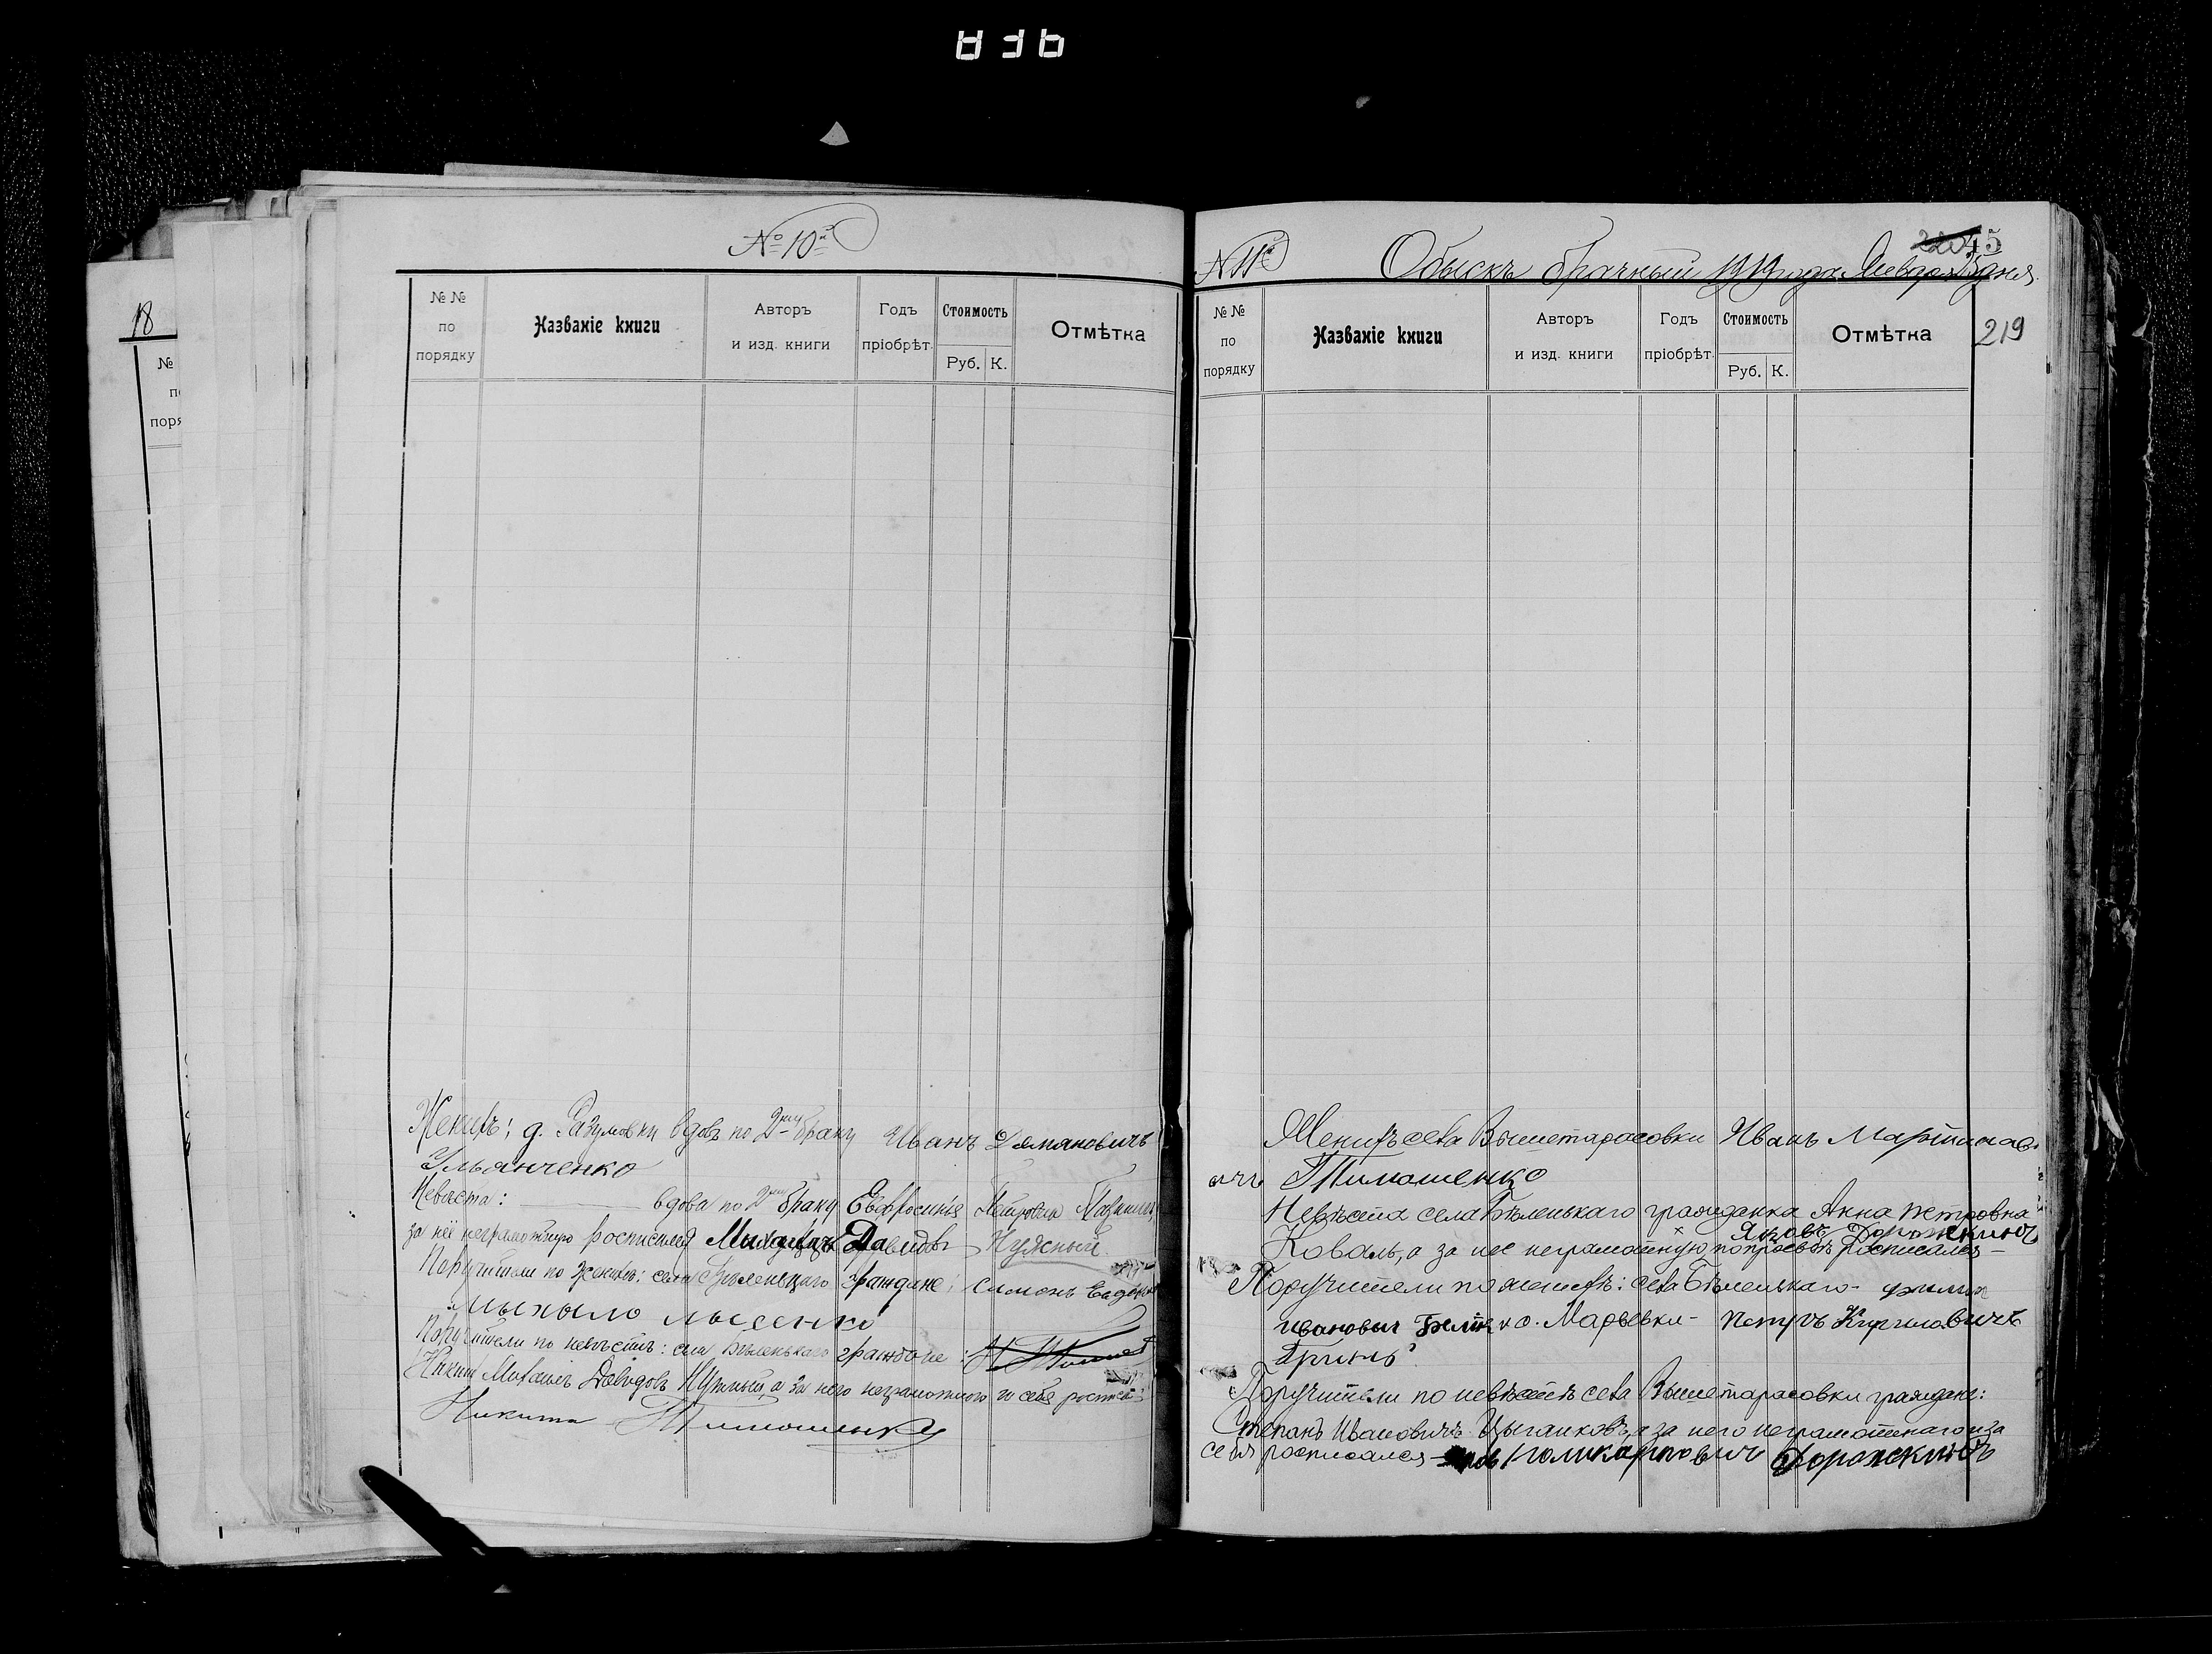 836
18
№
по
поряд
№ 10й
№ №
по
порядку
Названіе книги
Авторъ
и изд. книги
Годъ
пріобрѣт.
Стоимость
Руб. К.
Отмѣтка
Женихъ: д. Разумовки вдовъ по 2му браку Иванъ Демяновичъ
Ульянченко
Невѣста: вдова по 2му браку Евфросинія Петровна
за неё неграмотную росписался Михаилъ Давидовъ Нужный
Поручители по женихѣ: села Бѣленькаго граждане: Симонъ
и Мыхыло Лысенко
Поручители по невѣстѣ: села Бѣленькаго граждане:
Михаилъ Давидовъ Нужный, а за него неграмотного и себя
Никита Тимошенко
№ 11й
Обыскъ брачный 1919 года Января дня
45
219
№ №
по
порядку
Названіе книги
Авторъ
и изд. книги
Годъ
пріобрѣт.
Стоимость
Руб. К.
Отмѣтка
Женихъ села Вышетарасовки Иванъ Мартинов
ичъ Тимошенко
Невѣста села Бѣленькаго гражданка Анна Петровна
Яковъ Дорожкинъ
Коваль, а за нее неграмотную по просьбѣ росписался
Поручители по женихѣ: села Бѣленькаго - Филип
Иванович и с. Марьевки - Петръ Кириловичъ
Гриль
Поручители по невѣстѣ села Вышетарасовки граждане:
Степанъ Ивановичъ Цыганковъ, а за него неграмотнаго и за
себя росписался Поликарпович